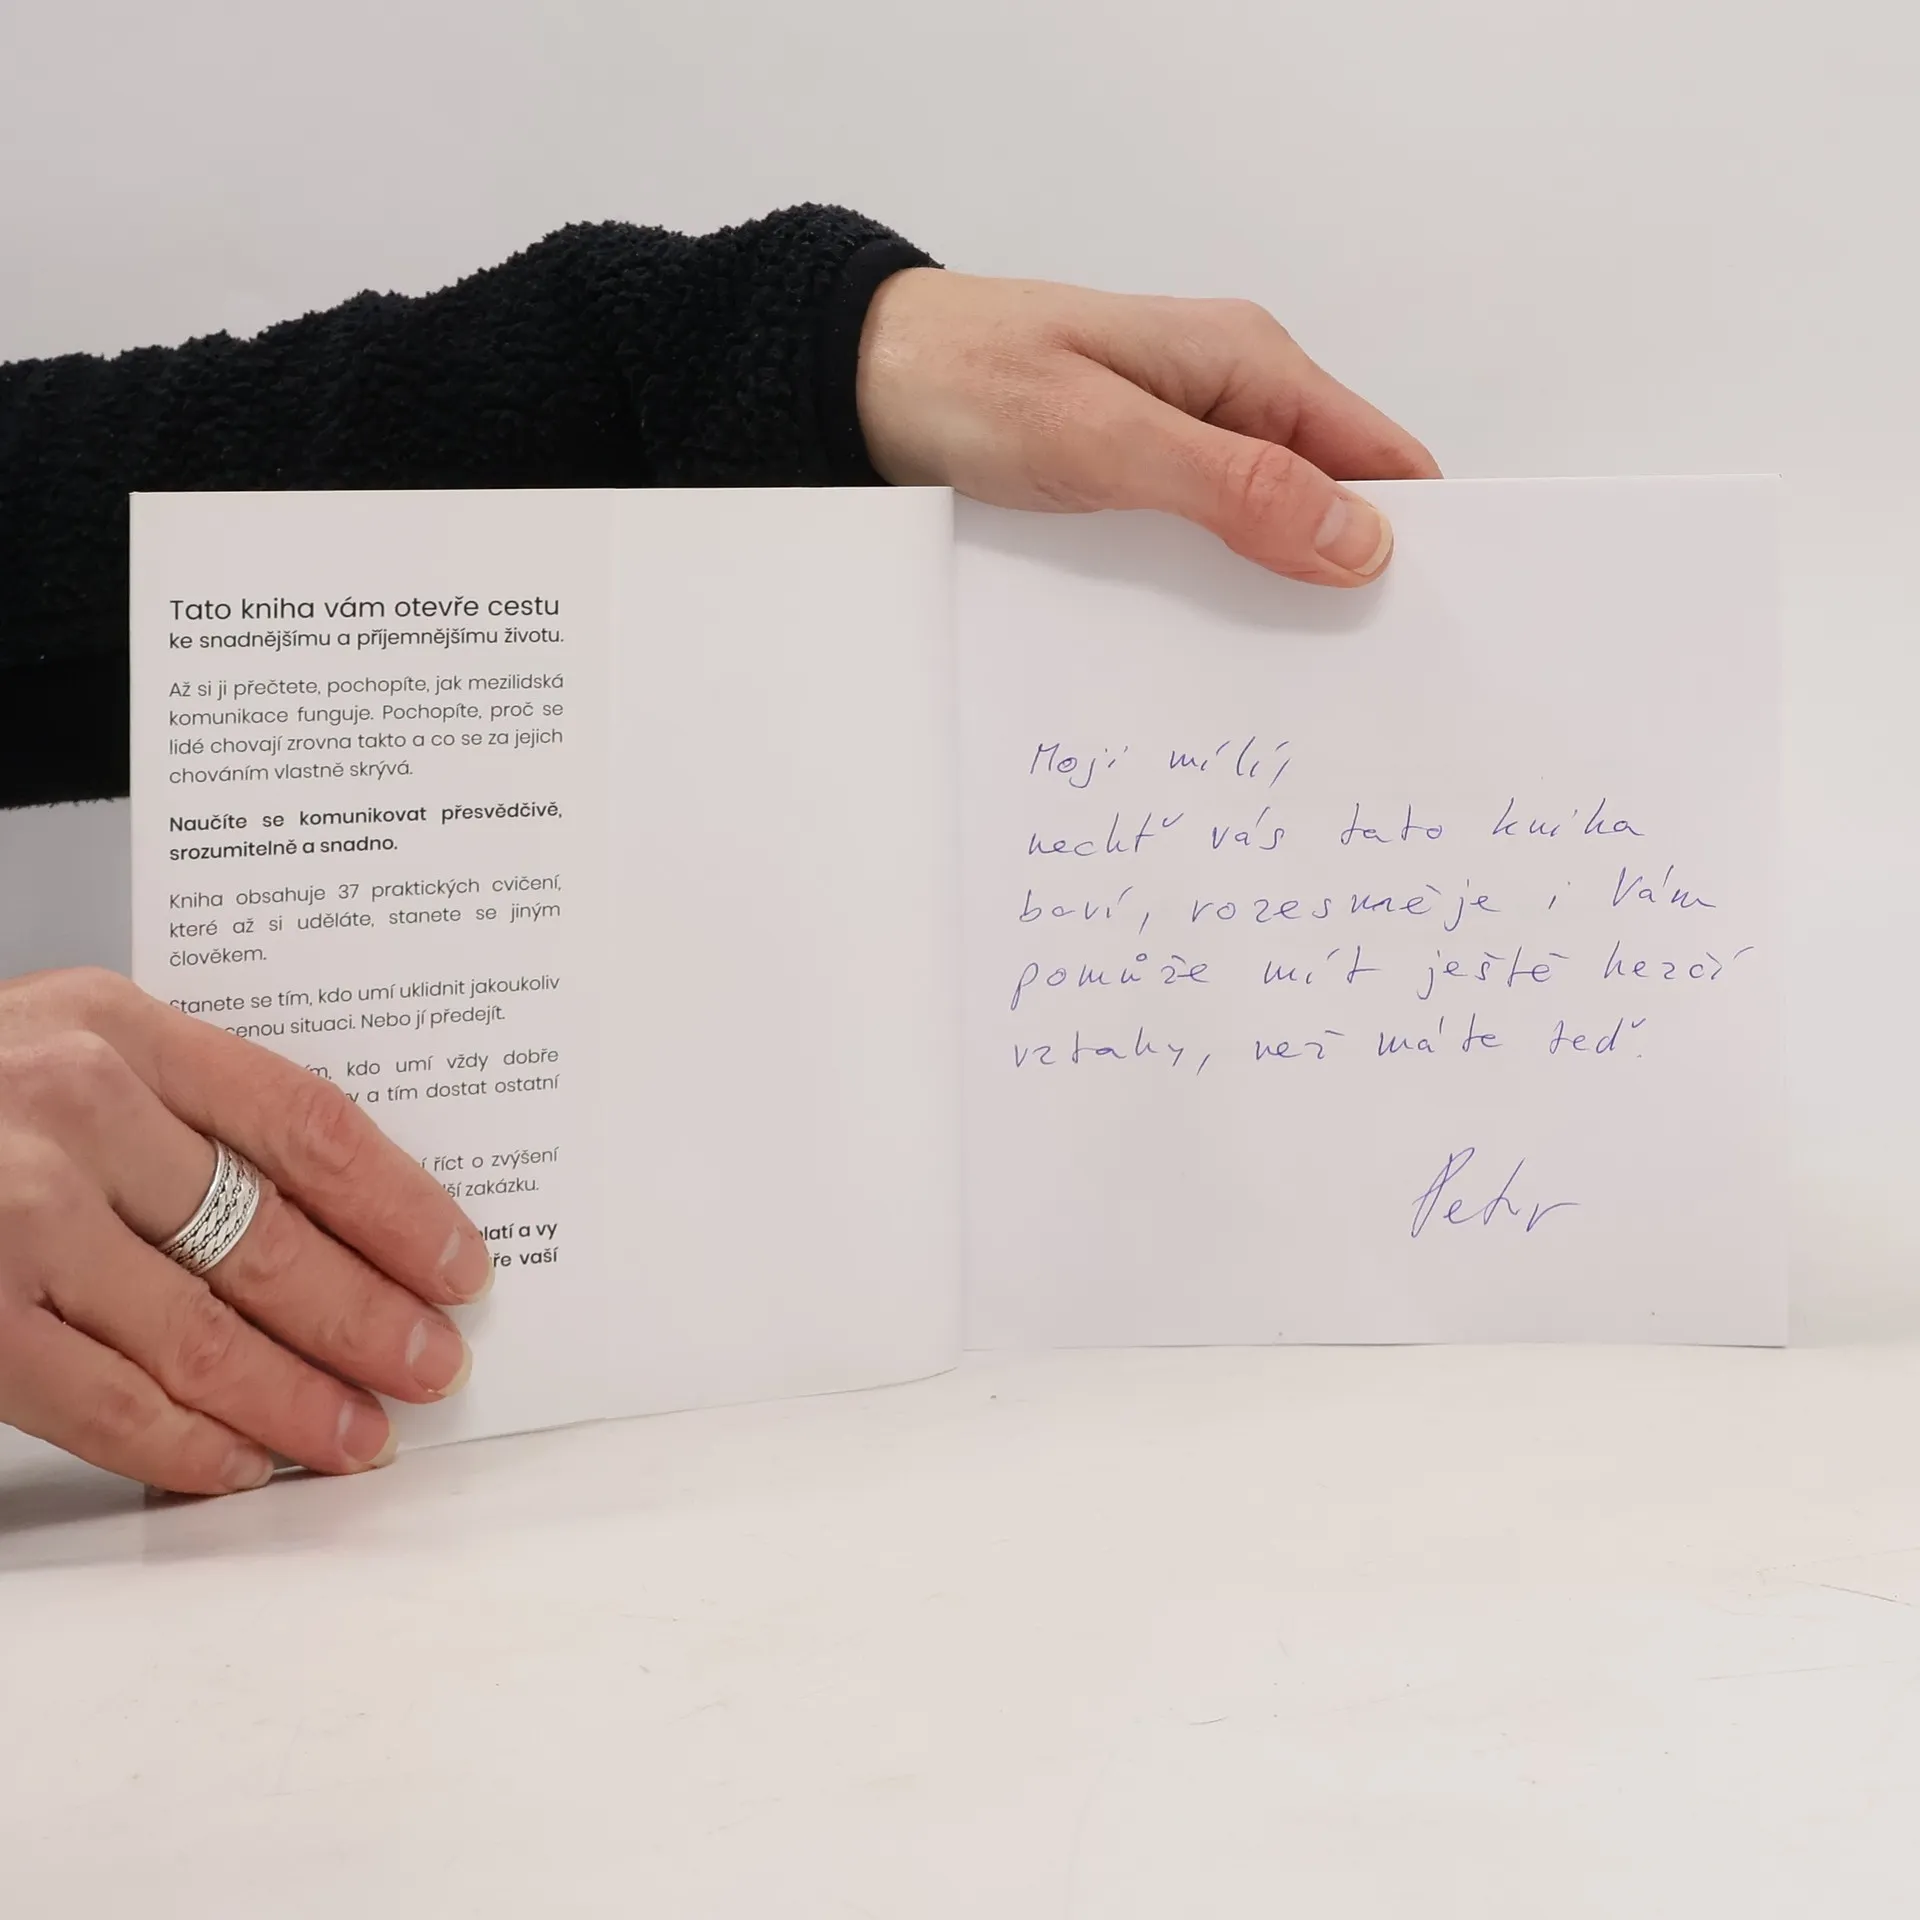 Tato kniha vám otevře cestu
ke snadnějšímu a příjemnějšímu životu.
Až si ji přečtete, pochopíte, jak mezilidská
komunikace funguje. Pochopíte, proč se
lidé chovají zrovna takto a co se za jejich
chováním vlastně skrývá.
Naučíte se komunikovat přesvědčivě,
srozumitelně a snadno.
Kniha obsahuje 37 praktických cvičení,
které až si uděláte, stanete se jiným
člověkem.
Stanete se tím, kdo umí uklidnit jakoukoliv
situaci. Nebo jí předejít.
kdo umí vždy dobře
a tím dostat ostatní
říct o zvýšení
zakázku.
a vy
vaší
Moji milí,
nechť vás tato kniha
baví, rozesměje i Vám
pomůže mít ještě hezčí
vztahy, než máte teď.
Petr